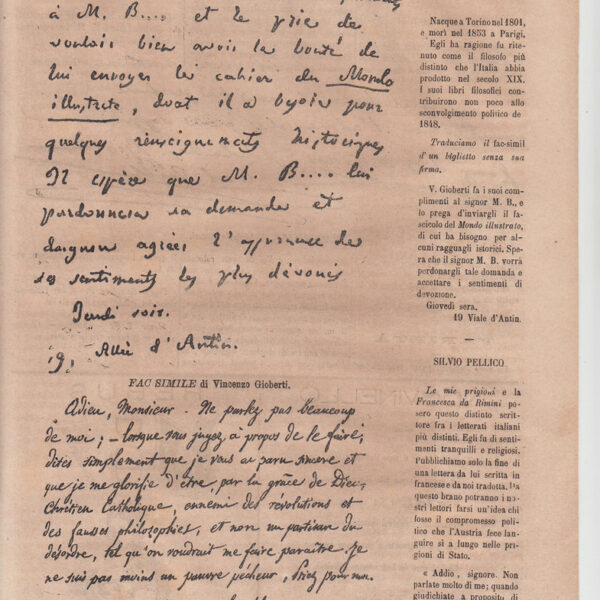 à M. B.... et le prie de
vouloir bien avoir la bonté de
lui envoyer le cahier du Mondo
illustrato, dont il a besoin pour
quelques renseignements historiques
Il espère que M. B.... lui
pardonnera sa demande et
daignera agréer l'assurance de
ses sentiments les plus dévoués
Jeudi soir.
19, Allée d'Antin.
FAC SIMILE di Vincenzo Gioberti.
Adieu, Monsieur. Ne parlez pas beaucoup
de moi; - lorsque vous jugez à propos de le faire,
dites simplement que je vous ai paru sincère et
que je me glorifie d'être, par la grâce de Dieu,
Chrétien Catholique, ennemi des révolutions et
des fausses philosophies, et non un partisan du
désordre, tel qu'on voudrait me faire paraître. Je
ne suis pas moins un pauvre pécheur, Priez pour moi.
Nacque a Torino nel 1801,
e morì nel 1853 a Parigi.
Egli ha ragione fu ri-
tenuto come il filosofo più
distinto che l'Italia abbia
prodotto nel secolo XIX.
I suoi libri filosofici con-
tribuirono non poco allo
sconvolgimento politico de
1848.
Traduciamo il fac-simil
d'un biglietto senza sua
firma.
V. Gioberti fa i suoi com-
plimenti al signor M. B., e
lo prega d'inviargli il fa-
scicolo del Mondo illustrato,
di cui ha bisogno per al-
cuni ragguagli istorici. Spe-
ra che il signor M. B. vorrà
perdonargli tale domanda e
accettare i sentimenti di
devozione.
Giovedì sera.
19 Viale d'Antin.
SILVIO PELLICO
Le mie prigioni e la
Francesca da Rimini po
sero questo distinto scrit-
tore fra i letterati italiani
più distinti. Egli fu di senti-
menti tranquilli e religiosi.
Pubblichiamo solo la fine di
una lettera da lui scritta in
francese e da noi tradotta. Da
questo brano potranno i no-
stri lettori farsi un'idea chi
fosse il compromesso poli-
tico che l'Austria fece lan-
guire sì a lungo nelle pri-
gioni di Stato.
« Addio, signore. Non
parlate molto di me; quando
giudichiate a proposito di